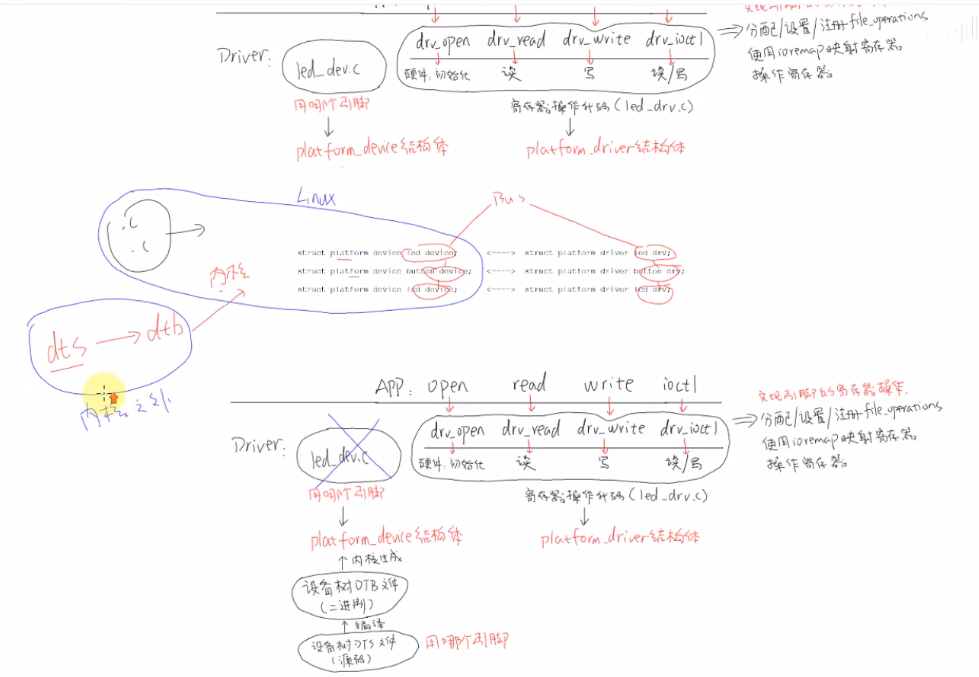 Driver:
led_dev.c
drv_open drv_read drv_write drv_ioctl
硬件:初始化 读 写 读/写
=> 分配/设置/注册file_operations
使用ioremap映射寄存器
操作寄存器
用哪个引脚
寄存器操作代码(led_drv.c)
platform_device结构体
platform_driver结构体
Linux
Bus
.c
.c
struct platform device led device; <----> struct platform driver led drv;
struct platform device button device; <----> struct platform driver button drv;
struct platform device led device; <----> struct platform driver led drv;
内核
dts → dtb
内核之外
APP: open read write ioctl
实现引脚的寄存器操作.
=> 分配/设置/注册file_operations
使用ioremap映射寄存器
操作寄存器
Driver:
led_dev.c
drv_open drv_read drv_write drv_ioctl
硬件:初始化 读 写 读/写
用哪个引脚
寄存器操作代码(led_drv.c)
platform_device结构体
platform_driver结构体
↑内核生成
设备树DTB文件
(二进制)
↑编译
设备树DTS文件
(源码)
用哪个引脚